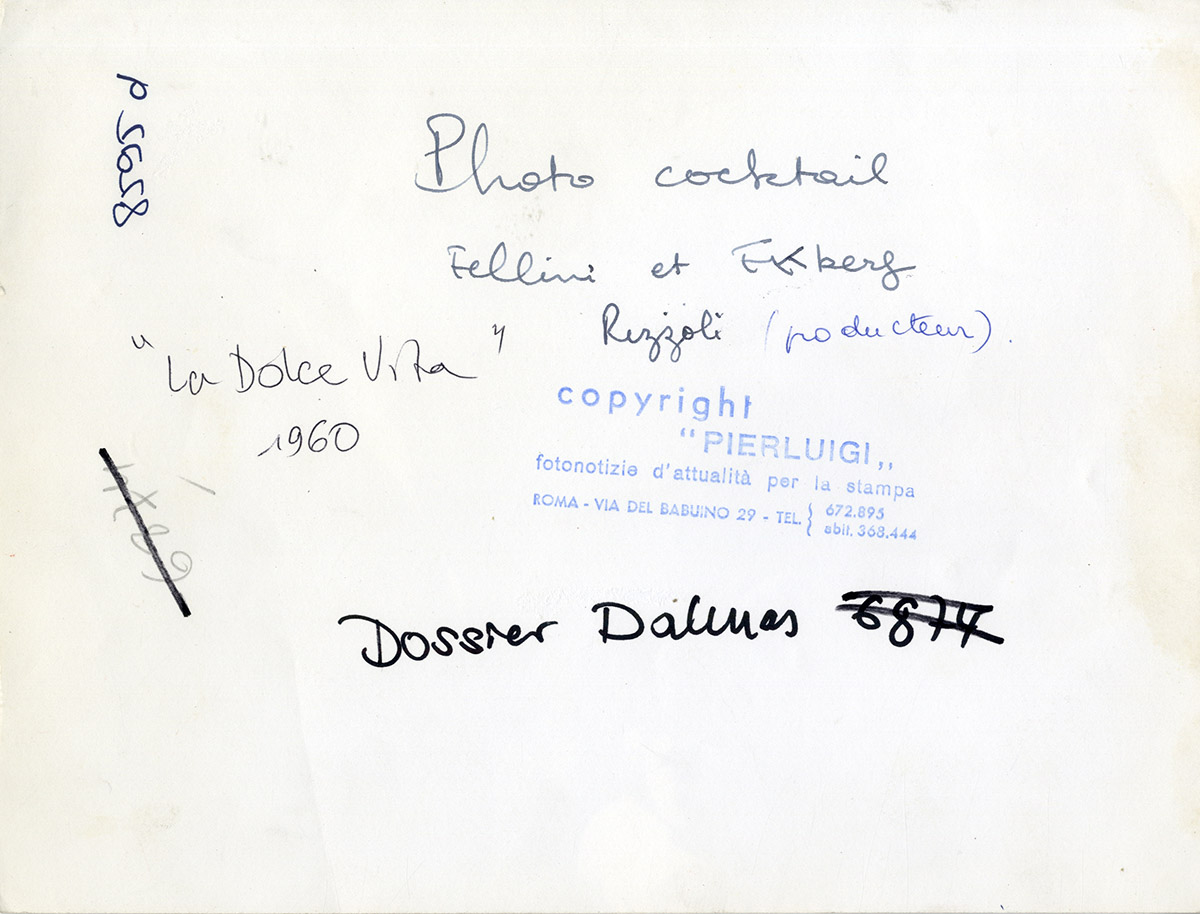 P 25058
Photo cocktail
Fellini et Ekberg
Rizzoli (producteur).
"La Dolce Vita"
1960
copyright
"PIERLUIGI„
fotonotizie d'attualità per la stampa
ROMA - VIA DEL BABUINO 29 - TEL. { 672.895
abit. 368.444
Dossier Dalmas 6874